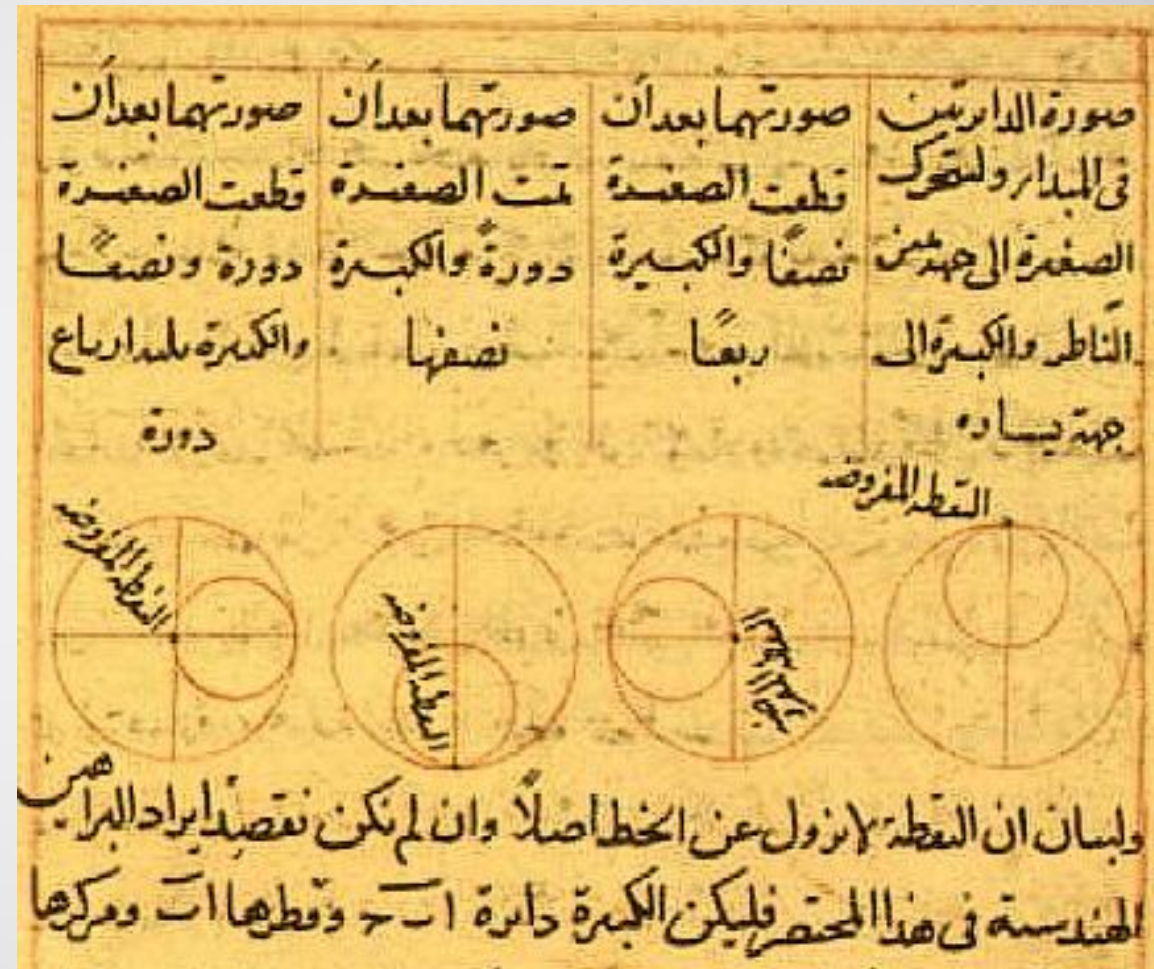 صورة الدائرتين
فى المبدأ ولتتحرك
الصغيرة الى جهة يمين
الناظر والكبيرة الى
جهة يساره
صورتهما بعد أن
قطعت الصغيرة
نصفًا والكبيرة
ربعًا
صورتهما بعد أن
تمت الصغيرة
دورةً والكبيرة
نصفها
صورتهما بعد أن
قطعت الصغيرة
دورة ونصفًا
والكبيرة ثلثة ارباع
دورة
النقطة المفروضة
النقطة المفروضة
النقطة المفروضة
النقطة المفروضة
ولبيان ان النقطة لا تزول عن الخط أصلًا وان لم نكن نقصد ايراد البراهين
الهندسية فى هذا المختصر فليكن الكبيرة دايرة اب ح وقطرها اب ومركزها